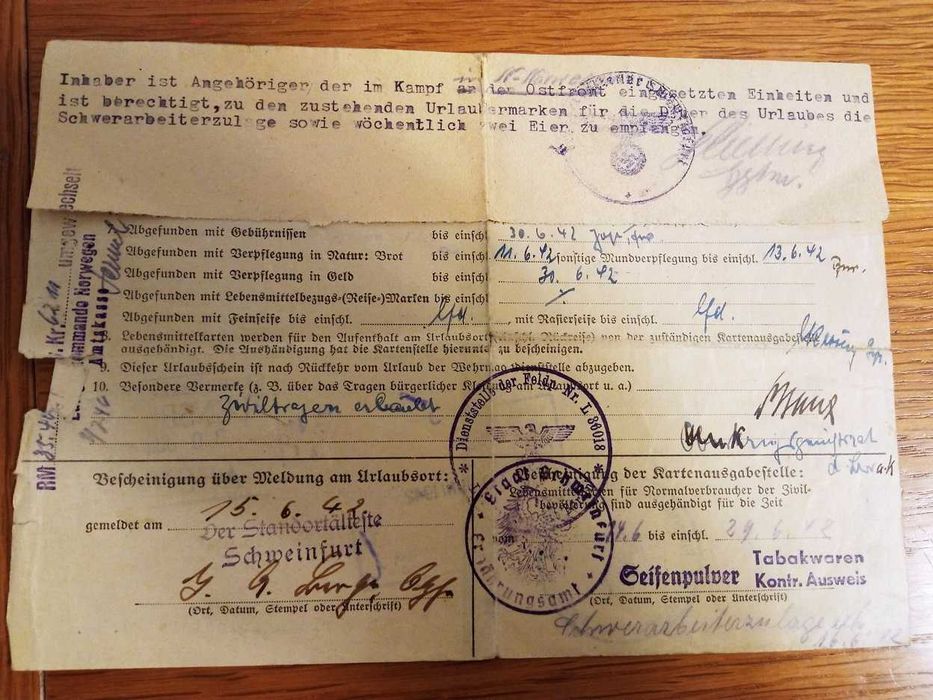 Inhaber ist Angehöriger der im Kampf an der Ostfront eingesetzten Einheiten und
ist berechtigt, zu den zustehenden Urlaubermarken für die Dauer des Urlaubes die
Schwerarbeiterzulage sowie wöchentlich zwei Eier zu empfangen.
Abgefunden mit Gebührnissen bis einschl. 30.6.42
Abgefunden mit Verpflegung in Natur: Brot bis einschl. 11.6.42 sonstige Mundverpflegung bis einschl. 13.6.42
Abgefunden mit Verpflegung in Geld bis einschl. 30.6.42
Abgefunden mit Lebensmittelbezugs-(Reise-)Marken bis einschl.
Abgefunden mit Feinseife bis einschl. lfd. , mit Rasierseife bis einschl. lfd.
Lebensmittelkarten werden für den Aufenthalt am Urlaubsort von der zuständigen Kartenausgabestelle
ausgehändigt. Die Aushändigung hat die Kartenstelle hierunter zu bescheinigen.
9. Dieser Urlaubschein ist nach Rückkehr vom Urlaub der Wehrmacht-Dienststelle abzugeben.
10. Besondere Vermerke (z. B. über das Tragen bürgerlicher Kleidung am Urlaubsort u. a.)
Ziviltragen erlaubt
Dienststelle der Feldp. Nr. L 36018
Kommando Norwegen
Amtskasse
umgewechselt
RM
Bescheinigung über Meldung am Urlaubsort:
gemeldet am 15.6.42
Der Standortälteste
Schweinfurt
(Ort, Datum, Stempel oder Unterschrift)
Bescheinigung der Kartenausgabestelle:
Lebensmittelkarten für Normalverbraucher der Zivil-
bevölkerung sind ausgehändigt für die Zeit
vom 14.6 bis einschl. 29.6.42
Stadt Schweinfurt
Ernährungsamt
Seifenpulver
Tabakwaren
Kontr. Ausweis
(Ort, Datum, Stempel oder Unterschrift)
Schwerarbeiterzulage